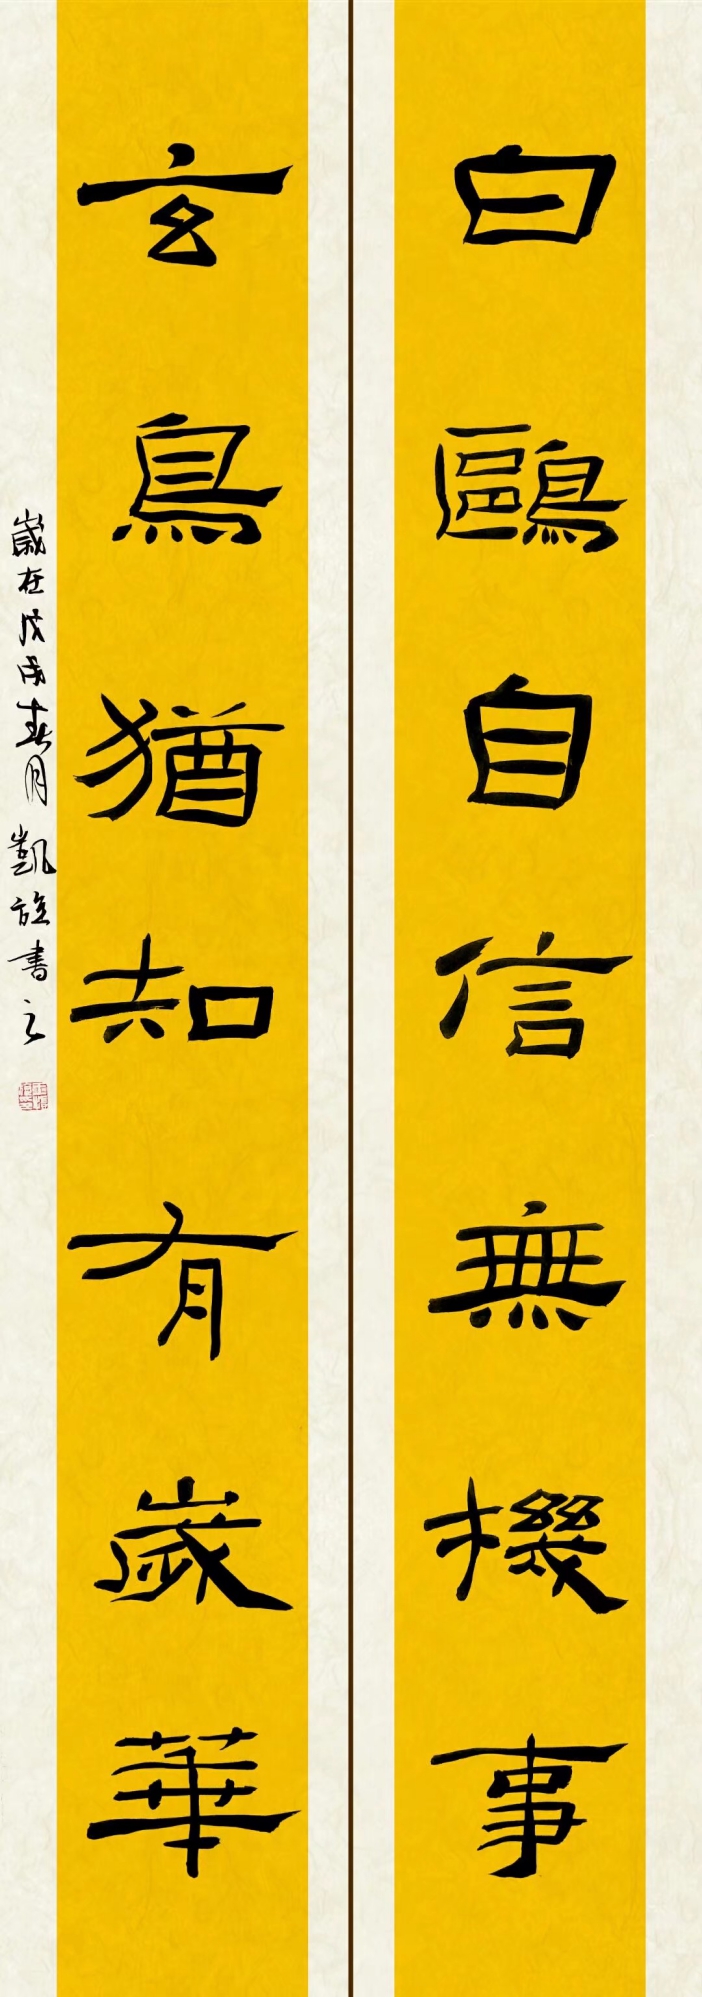 白鷗自信無機事
玄鳥猶知有歲華
歲在戊戌春月凱旋書之